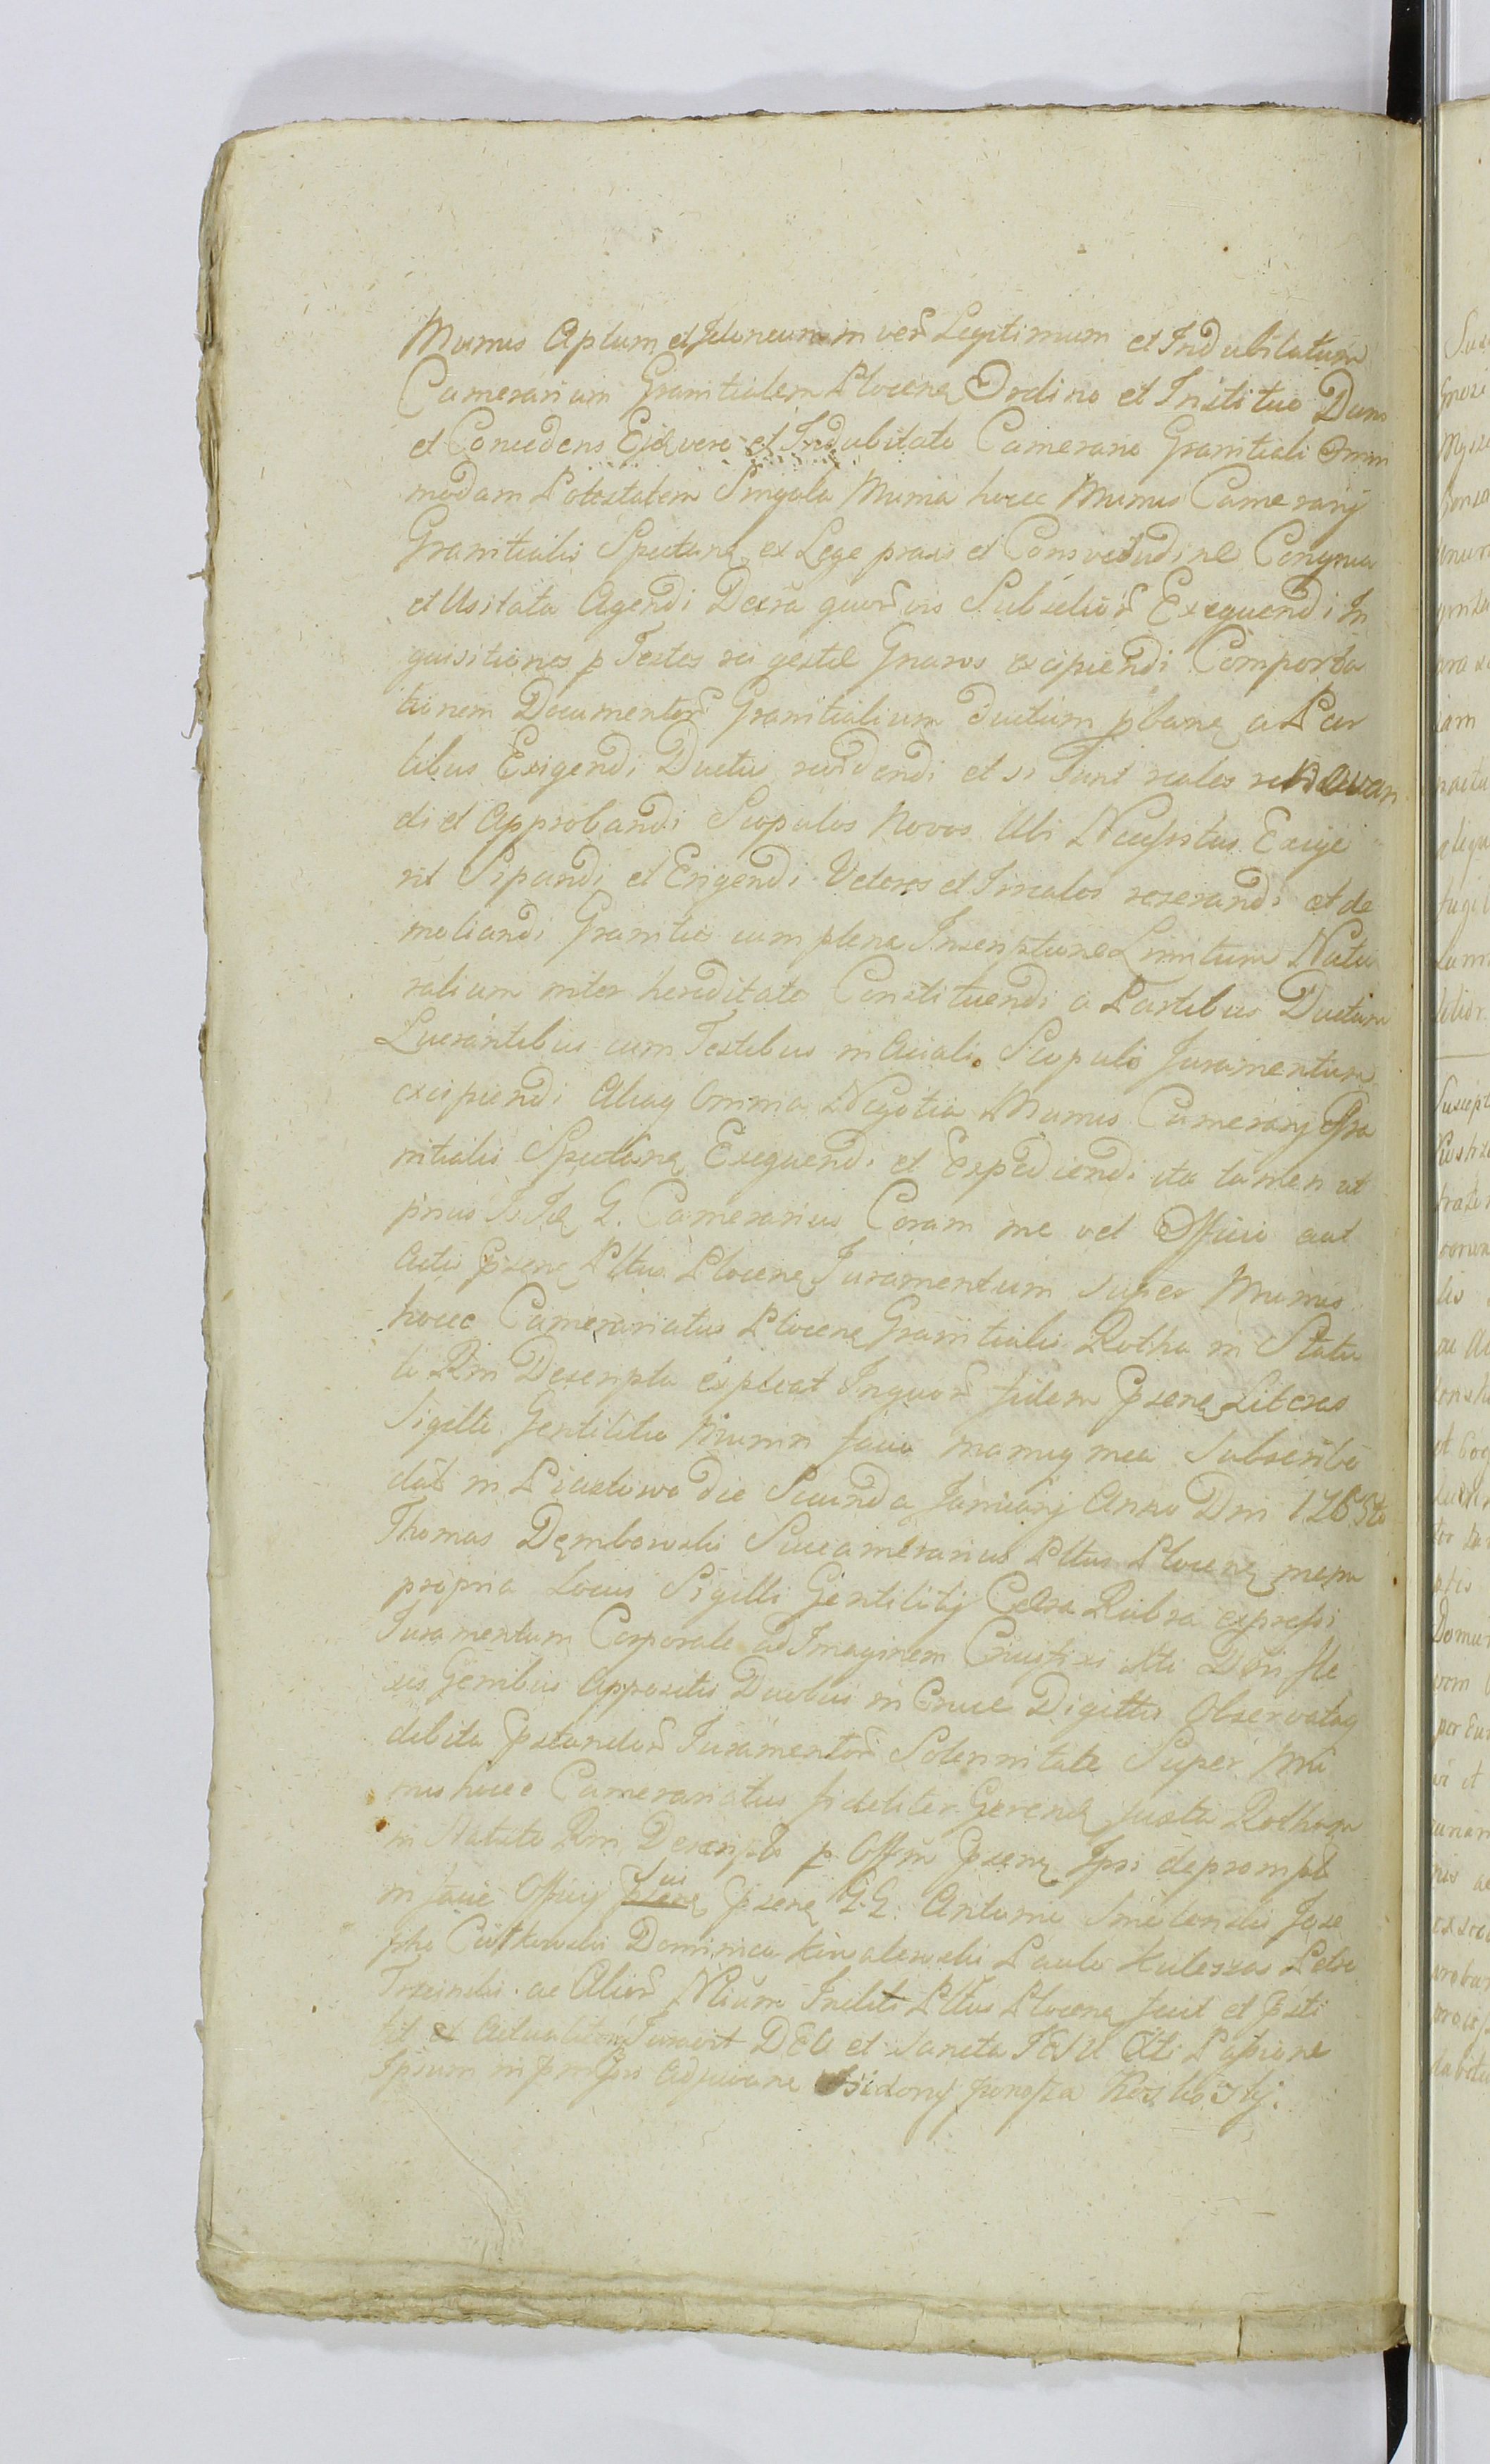 Munus Aptum et Idoneum in verũ Legitimum et Indubitatum
Camerarium Granitialem Plocenȩ Ordino et Instituo Dans
et Concedens Eidȩ vero et Indubitato Camerario Granitiali Omni
modam Potestatem Singula Munia hocce Munus Camerarij
Granitialis Spectanȩ ex Lege praxi et Consvetudine Congrua
et Usitata Agendi Decra quorũvis Subselior̃ Exequendi In
quisitiones p Testes rei gestæ Gnaros excipiendi Comporta
tionem Documentor̃ Granitialium ductum pbanȩ a Par
tibus Exigendi Ductu recidendi et si sunt reales renovan
di et Approbandi Scopulos Novos Ubi Necessitas Exige
rit Sipandi et Erigendi Veteres et Irreales reserandi et de
moliandi Granities cum plena Inscriptione Limitum Natu
ralium inter hereditates Constituendi a Partibus Ductum
Lucrantibus cum Testibus in Aciali Scopulo Juramentum
excipiendi Aliaq Omnia Negotia Munus Camerarij Gra
nitialis Spectanȩ Exequendi et Expediendi ita tamen ut
prius Idȩ G. Camerarius Coram me vel Officio aut
Actis pseneȩ Pltus Plocenȩ Juramentum super Munus
hocce Camerariatus Plocenȩ Granitialis Rotha in Statu
to Rni Descripta expleat Inquor̃ fidem psenȩ Literas
Sigillo Gentilitio Muniri facio manuq mea Subscribo
dat in Piastowo die Secunda Januarij Anno Dni 1765to
Thomas Dȩmbowski Succamerarius Pltus Plocenȩ mpa
propria Locus Sigilli Gentilitij Cera Rubra expressi
Juramentum Corporale ad Imaginem Crucifixi Xti Dni fle
xis Genibus Appositis Duobus in Cruce Digittis Observataq
debita pstandor̃ Juramentor̃ Solennitate Super Mu
nus hocce Camerariatus fideliter Gerenȩ juxta Rotham
in Statuto Rni Descripto p Offm psenȩ Ipsi deprompt
in facie Officij Sui psenȩ psenȩ G.G. Antonio Smolenski Jose
pho Ciółkowski Dominico Kowalewski Paulo Kulesza Petro
Trzcinski ac Alior̃ Nlium Incliti Pltus Plocenȩ fecit et psti
tit et Actualiter Juravit DEO et Sancta JESU Xti Passione
Ipsum in pmssis Adjuvanȩ Isidory Jonosza